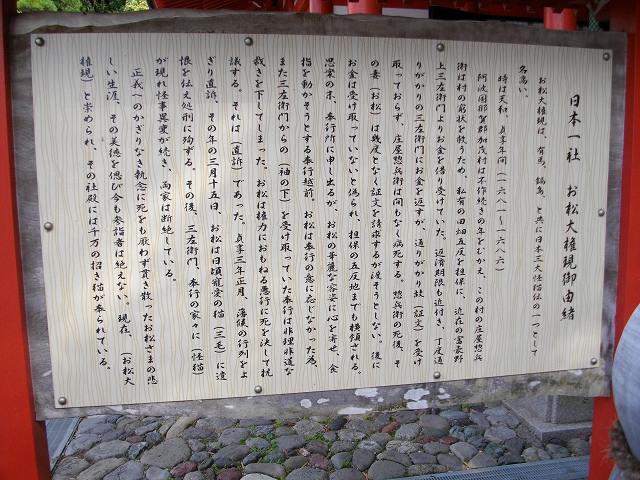 日本一社　お松大権現御由緒
お松大権現は、有馬、鍋島、と共に日本三大怪猫伝の一つとして
名高い。
時は天和、貞享年間（一六八一～一六八六）
阿波国那賀郡加茂村は不作続きの年をむかえ、この村の庄屋惣兵
衛は村の窮状を救うため、私有の田畑五反を担保に、近在の富豪野
上三左衛門よりお金を借り受けていた。返済期限も近付き、丁度通
りがかりの三左衛門にお金を返すが、通りがかり故（証文）を受け
取っておらず、庄屋惣兵衛は間もなく病死する。惣兵衛の死後、そ
の妻（お松）は幾度となく証文を請求するが渡そうとしない。後に
お金は受け取っていないと偽られ、担保の五反地までも横領される。
思案の末、奉行所に申し出るが、お松の華麗な容姿に心を寄せ、食
指を動かそうとする奉行越前、お松は奉行の意に応じなかった為、
また三左衛門からの（袖の下）を受け取っていた奉行は非理非道な
裁きを下してしまった。お松は権力におもねる悪行に死を決して抗
議する。それは（直訴）であった。貞享三年正月、藩候の行列をよ
ぎり直訴、その年の三月十五日、お松は日頃寵愛の猫（三毛）に遺
恨を伝え処刑に殉ずる。その後、三左衛門、奉行の家々に（怪猫）
が現れ怪事異変が続き、両家は断絶している。
正義へのかぎりなき執念に死をも厭わず貫き散ったお松さまの悲
しい生涯、その美徳を偲び今も参詣者は絶えない。現在、（お松大
権現）と崇められ、その社殿には千万の招き猫が奉られている。